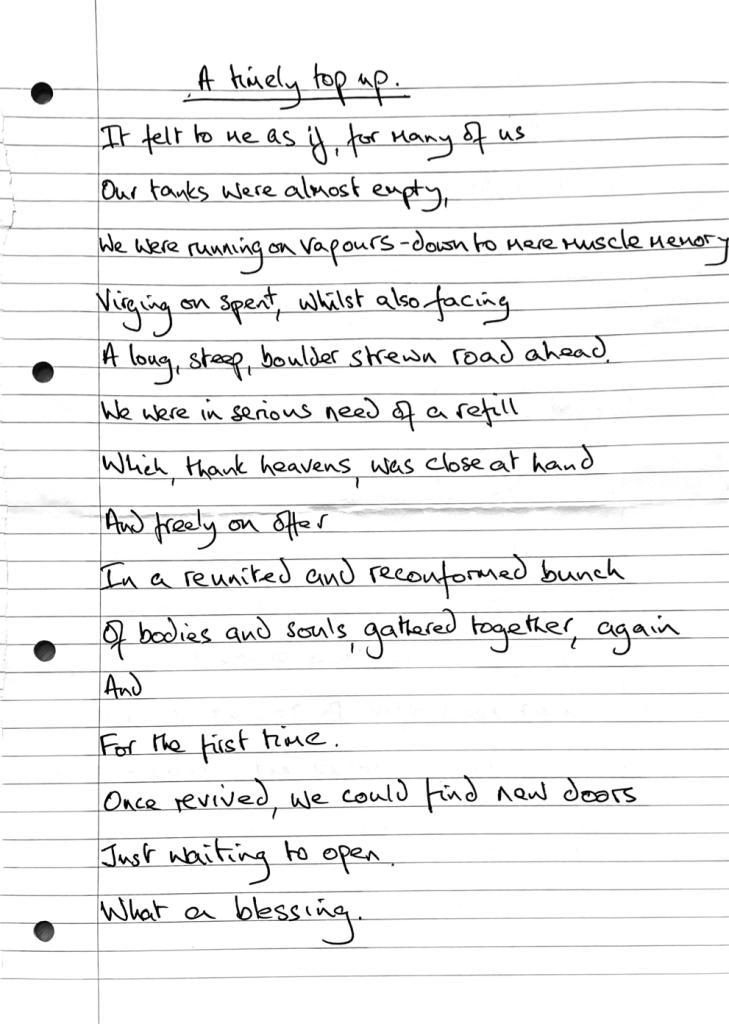 A timely top up.
It felt to me as if, for many of us
Our tanks were almost empty,
We were running on vapours - down to mere muscle memory
Virging on spent, whilst also facing
A long, steep, boulder strewn road ahead.
We were in serious need of a refill
Which, thank heavens, was close at hand
And freely on offer
In a reunited and reconformed bunch
Of bodies and souls, gathered together, again
And
For the first time.
Once revived, we could find new doors
Just waiting to open.
What a blessing.